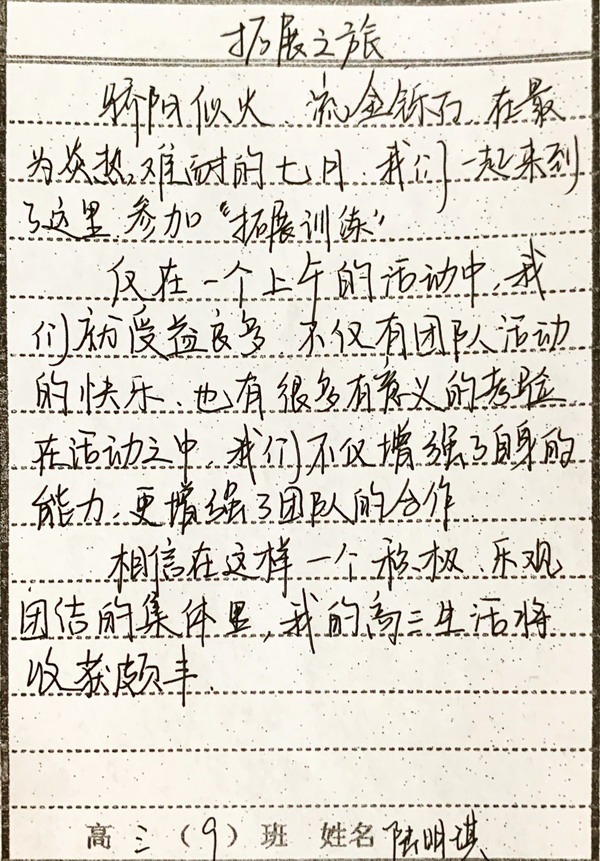 拓展之旅
骄阳似火、流金铄石、在最
为炎热难耐的七月、我们一起来到
了这里、参加“拓展训练”
仅在一个上午的活动中,我
们就受益良多、不仅有团队活动
的快乐、也有很多有意义的考验
在活动之中、我们不仅增强了自身的
能力、更增强了团队的合作
相信在这样一个积极、乐观、
团结的集体里,我的高三生活将
收获颇丰.
高三(9)班 姓名 陆明淇